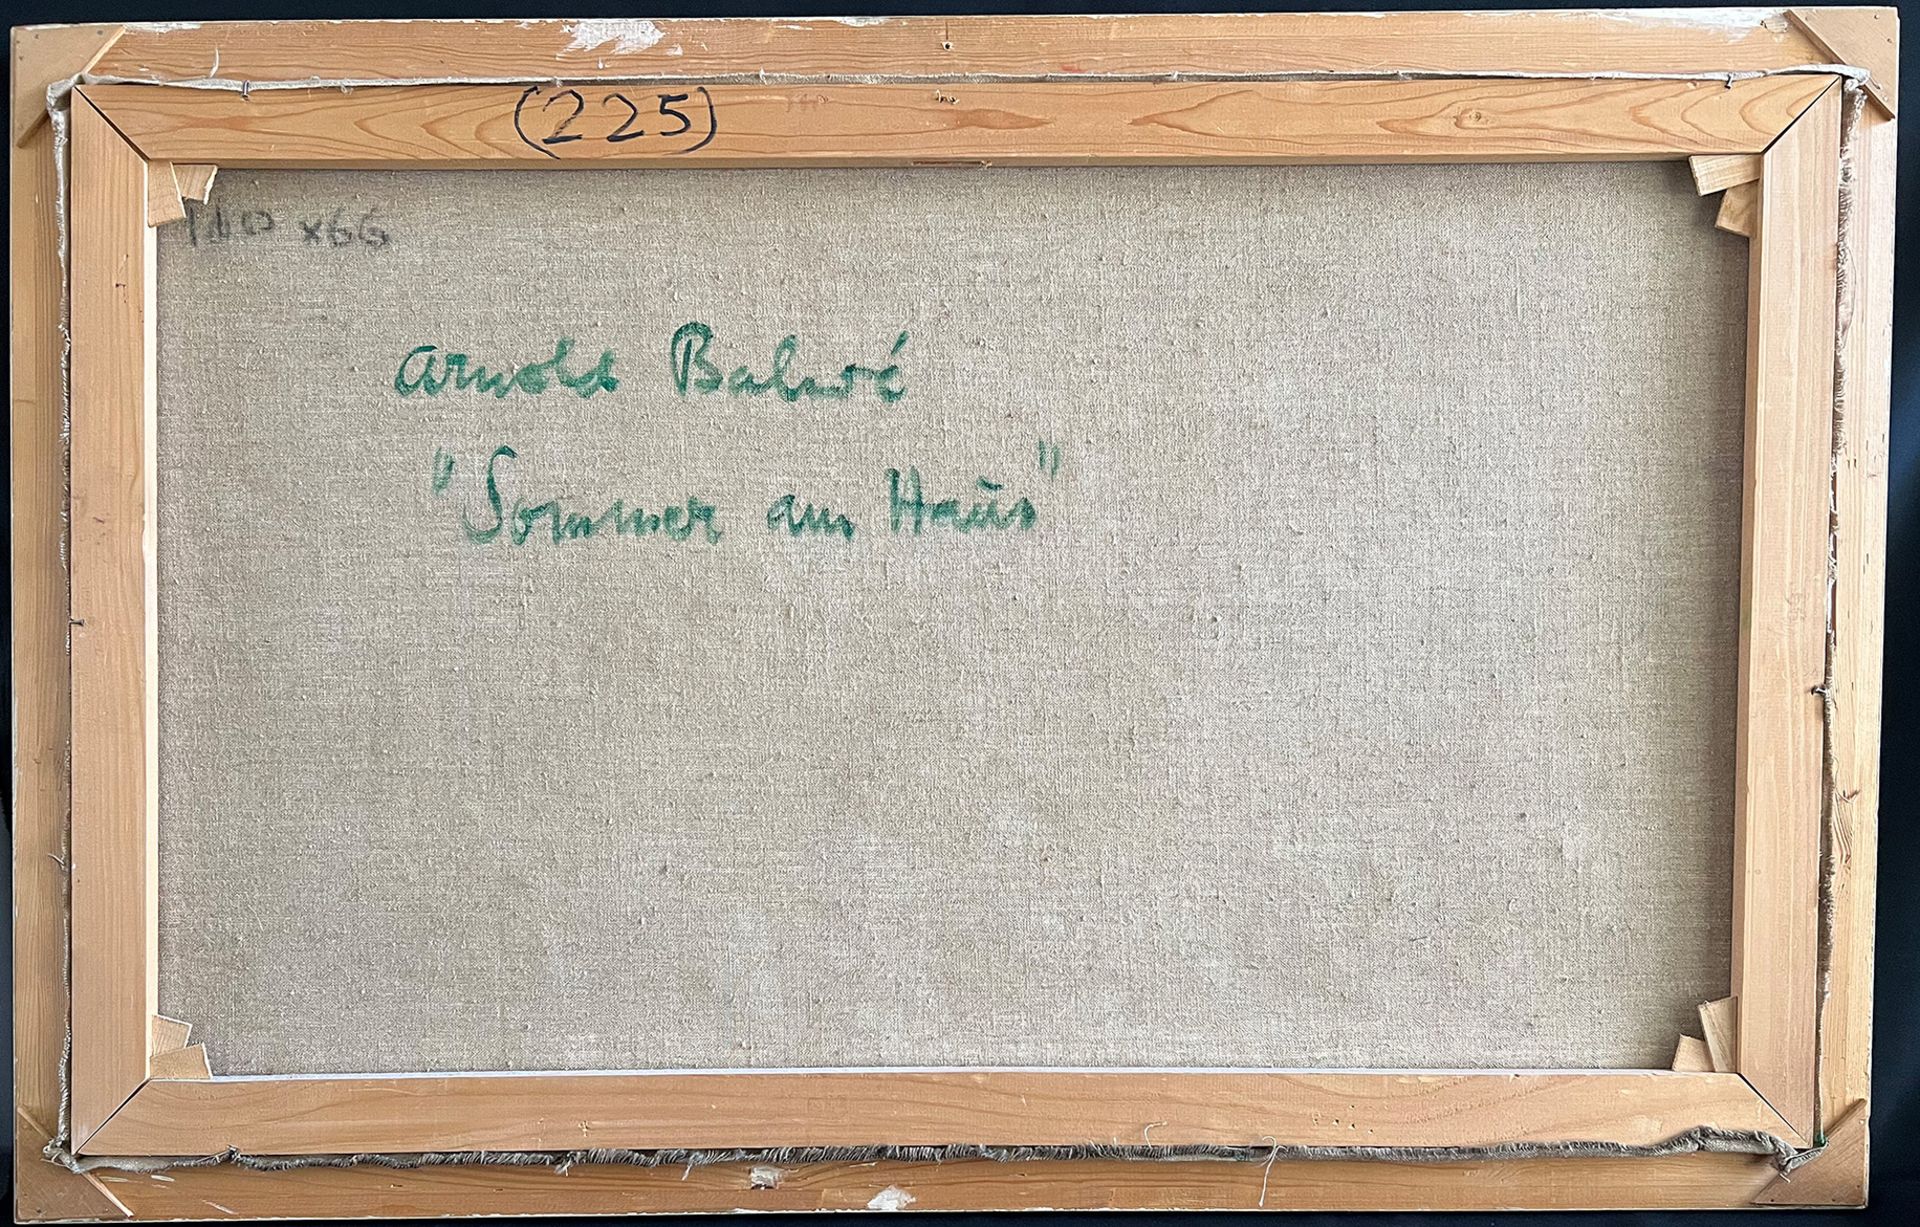 (225)
110 x66
Arnold Balwé
"Sommer am Haus"